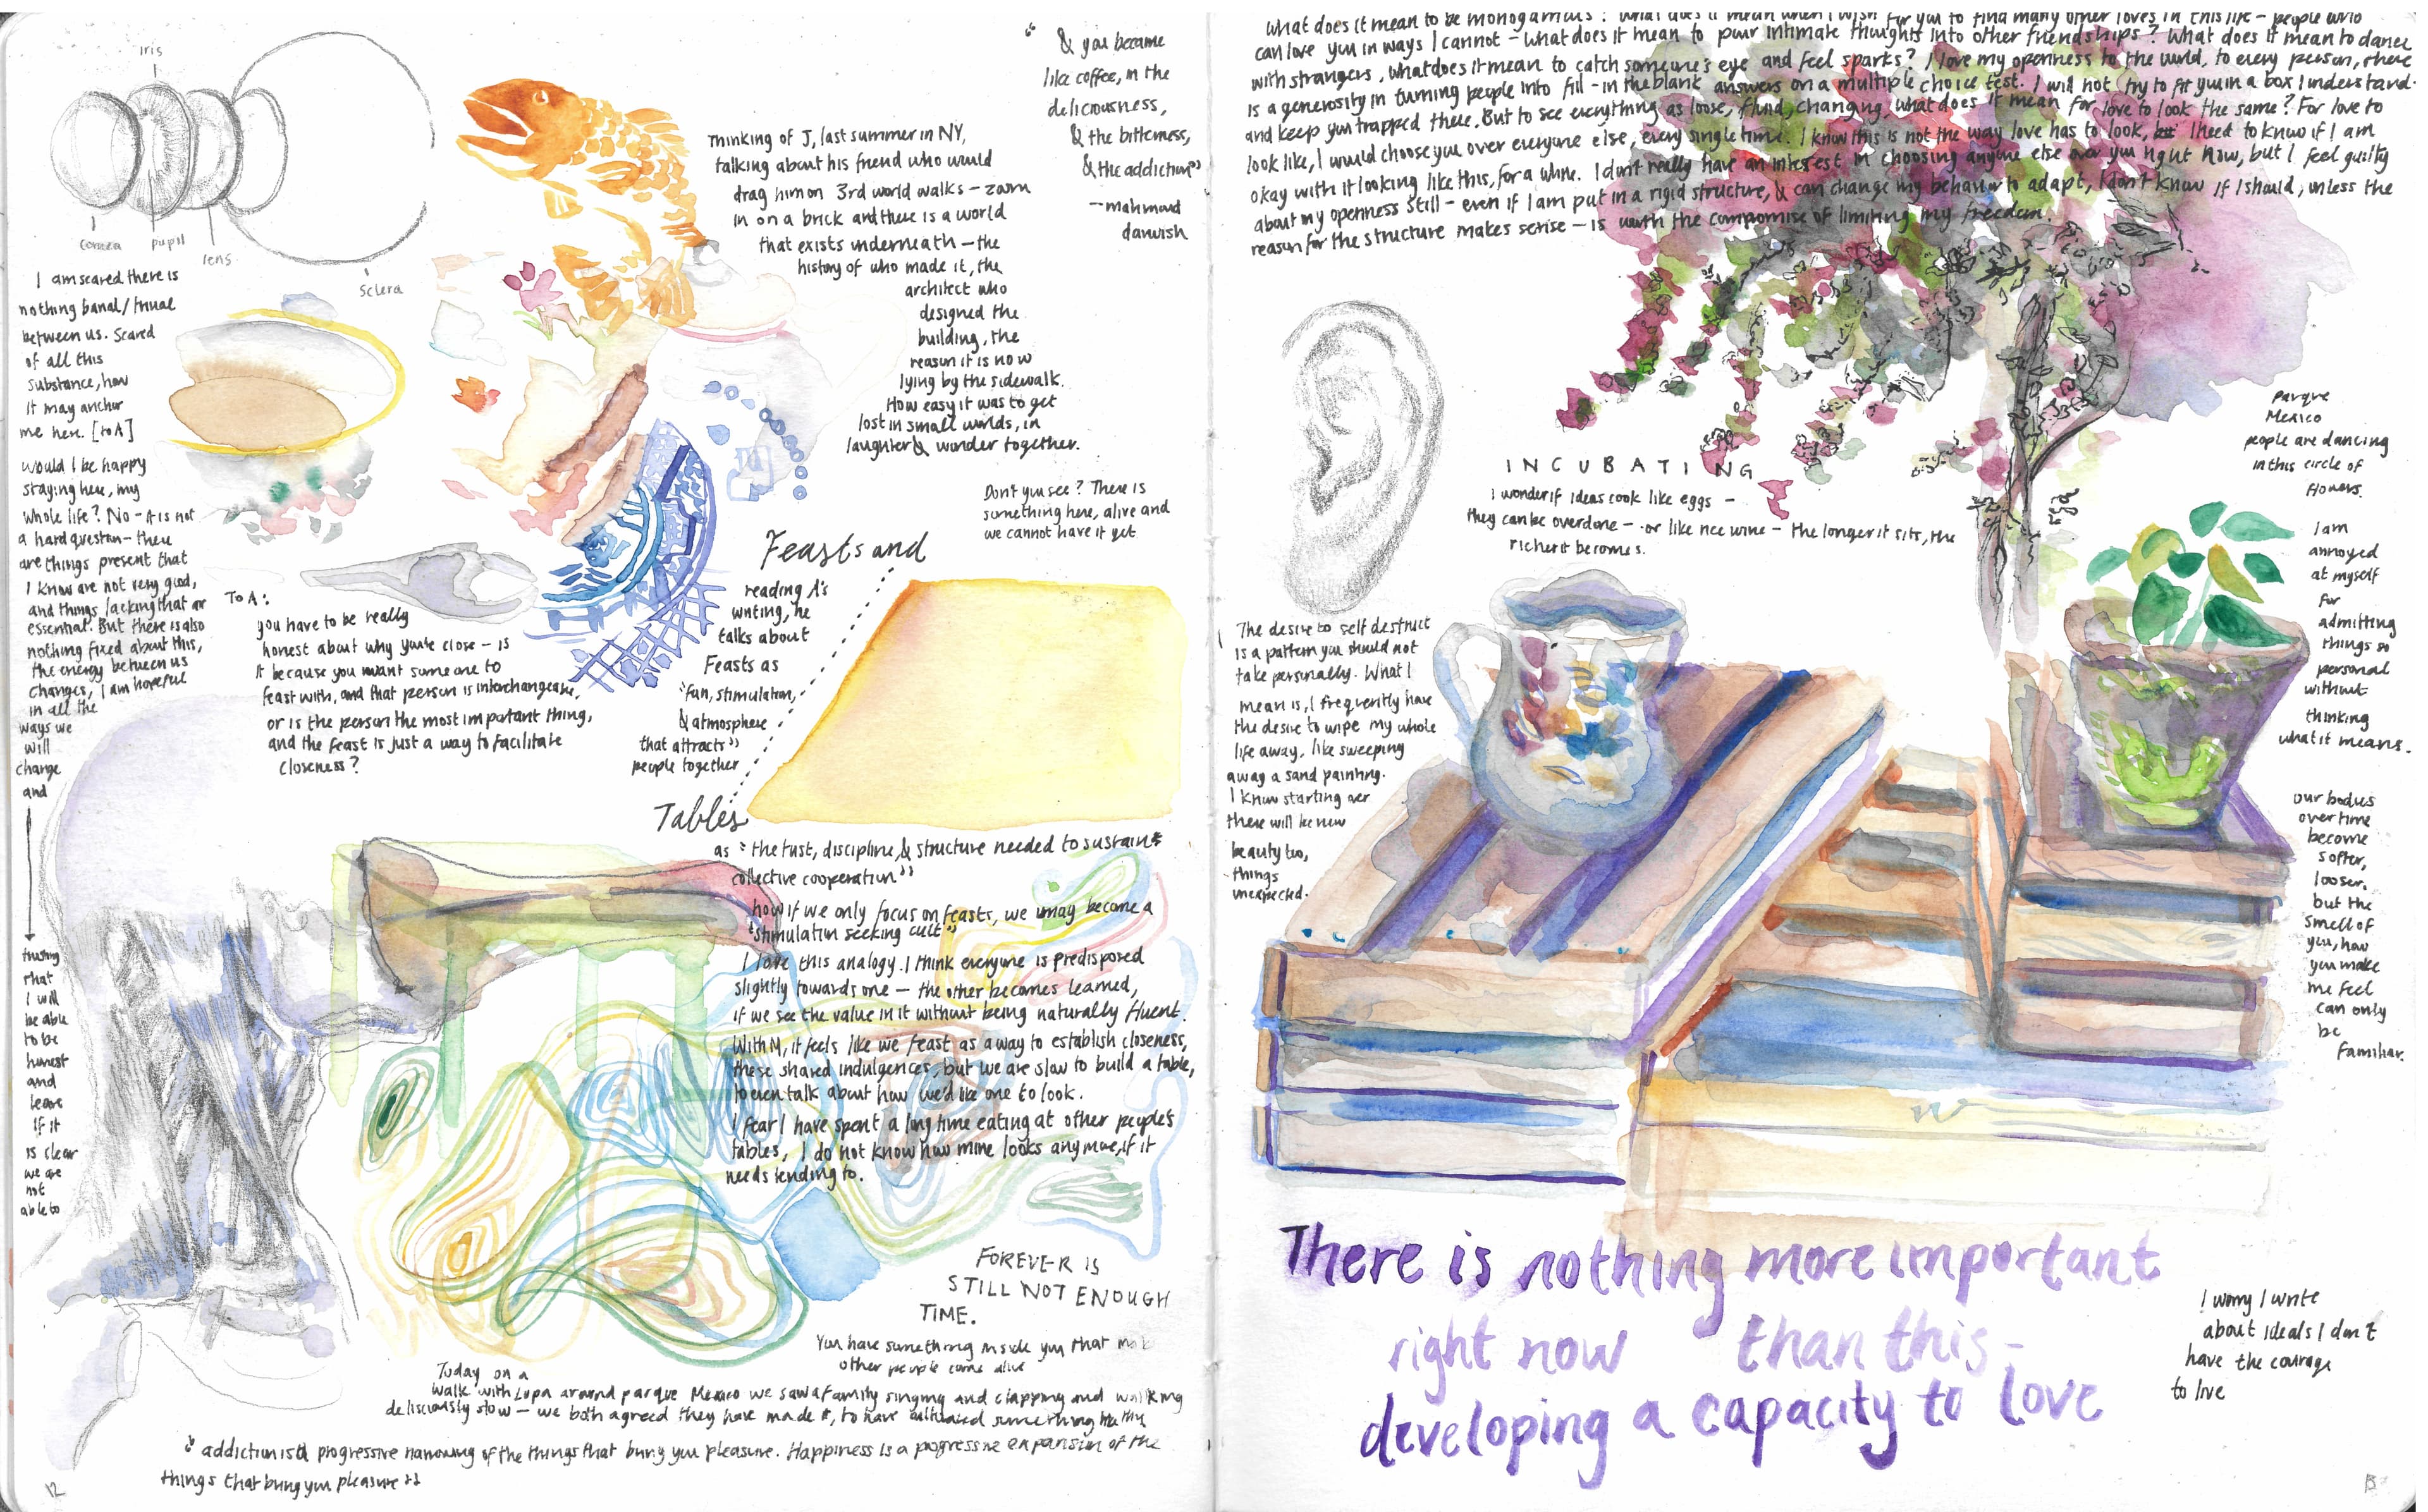 iris
cornea
pupil
lens
sclera
I am scared there is
nothing banal/trivial
between us. Scared
of all this
substance, how
it may anchor
me here. [to A]
would I be happy
staying here, my
whole life? No – it is not
a hard question – there
are things present that
I know are not very good,
and things lacking that are
essential. But there is also
nothing fixed about this,
the energy between us
changes, I am hopeful
in all the
ways we
will
change
and
trusting
that
I will
be able
to be
honest
and
leave
if it
is clear
we are
not
able to
To A:
you have to be really
honest about why you're close – is
it because you want someone to
feast with, and that person is interchangeable,
or is the person the most important thing,
and the feast is just a way to facilitate
closeness?
Thinking of J, last summer in NY,
talking about his friend who would
drag him on 3rd world walks – zoom
in on a brick and there is a world
that exists underneath – the
history of who made it, the
architect who
designed the
building, the
reason it is now
lying by the sidewalk.
How easy it was to get
lost in small worlds, in
laughter & wonder together.
"& you became
like coffee, in the
deliciousness,
& the bitterness,
& the addiction"
– mahmoud
darwish
Don't you see? There is
something here, alive and
we cannot have it yet
Feasts and
reading A's
writing, he
talks about
Feasts as
"fun, stimulation,
& atmosphere
that attracts"
people together
Tables
as "the trust, discipline, & structure needed to sustain
collective cooperation"
how if we only focus on feasts, we may become a
"stimulation seeking cult"
I love this analogy. I think everyone is predisposed
slightly towards one – the other becomes learned,
if we see the value in it without being naturally fluent.
With M, it feels like we feast as a way to establish closeness,
these shared indulgences, but we are slow to build a table,
to even talk about how we'd like one to look.
I fear I have spent a long time eating at other people's
tables, I do not know how mine looks anymore, if it
needs tending to.
FOREVER IS
STILL NOT ENOUGH
TIME.
You have something inside you that
other people come alive
Today on a
walk with Lupa around parque Mexico we saw a family singing and clapping and walking
deliciously slow – we both agreed they have made it, to have cultivated something like this
"addiction is a progressive narrowing of the things that bring you pleasure. Happiness is a progressive expansion of the
things that bring you pleasure"
12
What does it mean to be monogamous? What does it mean when I wish for you to find many other loves in this life – people who
can love you in ways I cannot – what does it mean to pour intimate thoughts into other friendships? What does it mean to dance
with strangers, what does it mean to catch someone's eye and feel sparks? I love my openness to the world, to every person, there
is a generosity in turning people into fill-in the blank answers on a multiple choice test. I will not try to fit you in a box I understand
and keep you trapped there. But to see everything as loose, fluid, changing, what does it mean for love to look the same? For love to
look like, I would choose you over everyone else, every single time. I know this is not the way love has to look, but I need to know if I am
okay with it looking like this, for a while. I don't really have an interest in choosing anyone else over you right now, but I feel guilty
about my openness still – even if I am put in a rigid structure, & can change my behavior to adapt, I don't know if I should, unless the
reason for the structure makes sense – is worth the compromise of limiting my freedom.
INCUBATING
I wonder if ideas cook like eggs –
they can be overdone – or like rice wine – the longer it sits, the
richer it becomes.
The desire to self destruct
is a pattern you should not
take personally. What I
mean is, I frequently have
the desire to wipe my whole
life away, like sweeping
away a sand painting.
I know starting over
there will be new
beauty too,
things
unexpected.
parque
Mexico
people are dancing
in this circle of
flowers.
I am
annoyed
at myself
for
admitting
things so
personal
without
thinking
what it means.
our bodies
over time
become
softer,
looser.
but the
smell of
you, how
you make
me feel
can only
be
familiar.
There is nothing more important
right now than this –
developing a capacity to love
I worry I write
about ideals I don't
have the courage
to live